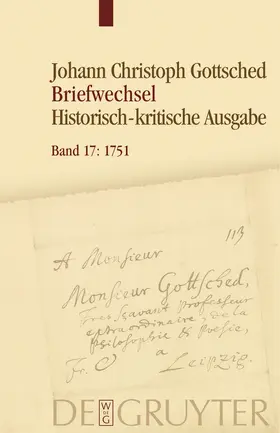 Johann Christoph Gottsched
Briefwechsel
Historisch-kritische Ausgabe
Band 17: 1751
113
A Monsieur
Monsieur Gottsched,
professeur
extraordinaire, de la
Philosophie & Poesie,
Fr. a
Leipzig.
W
DE
G
DE GRUYTER